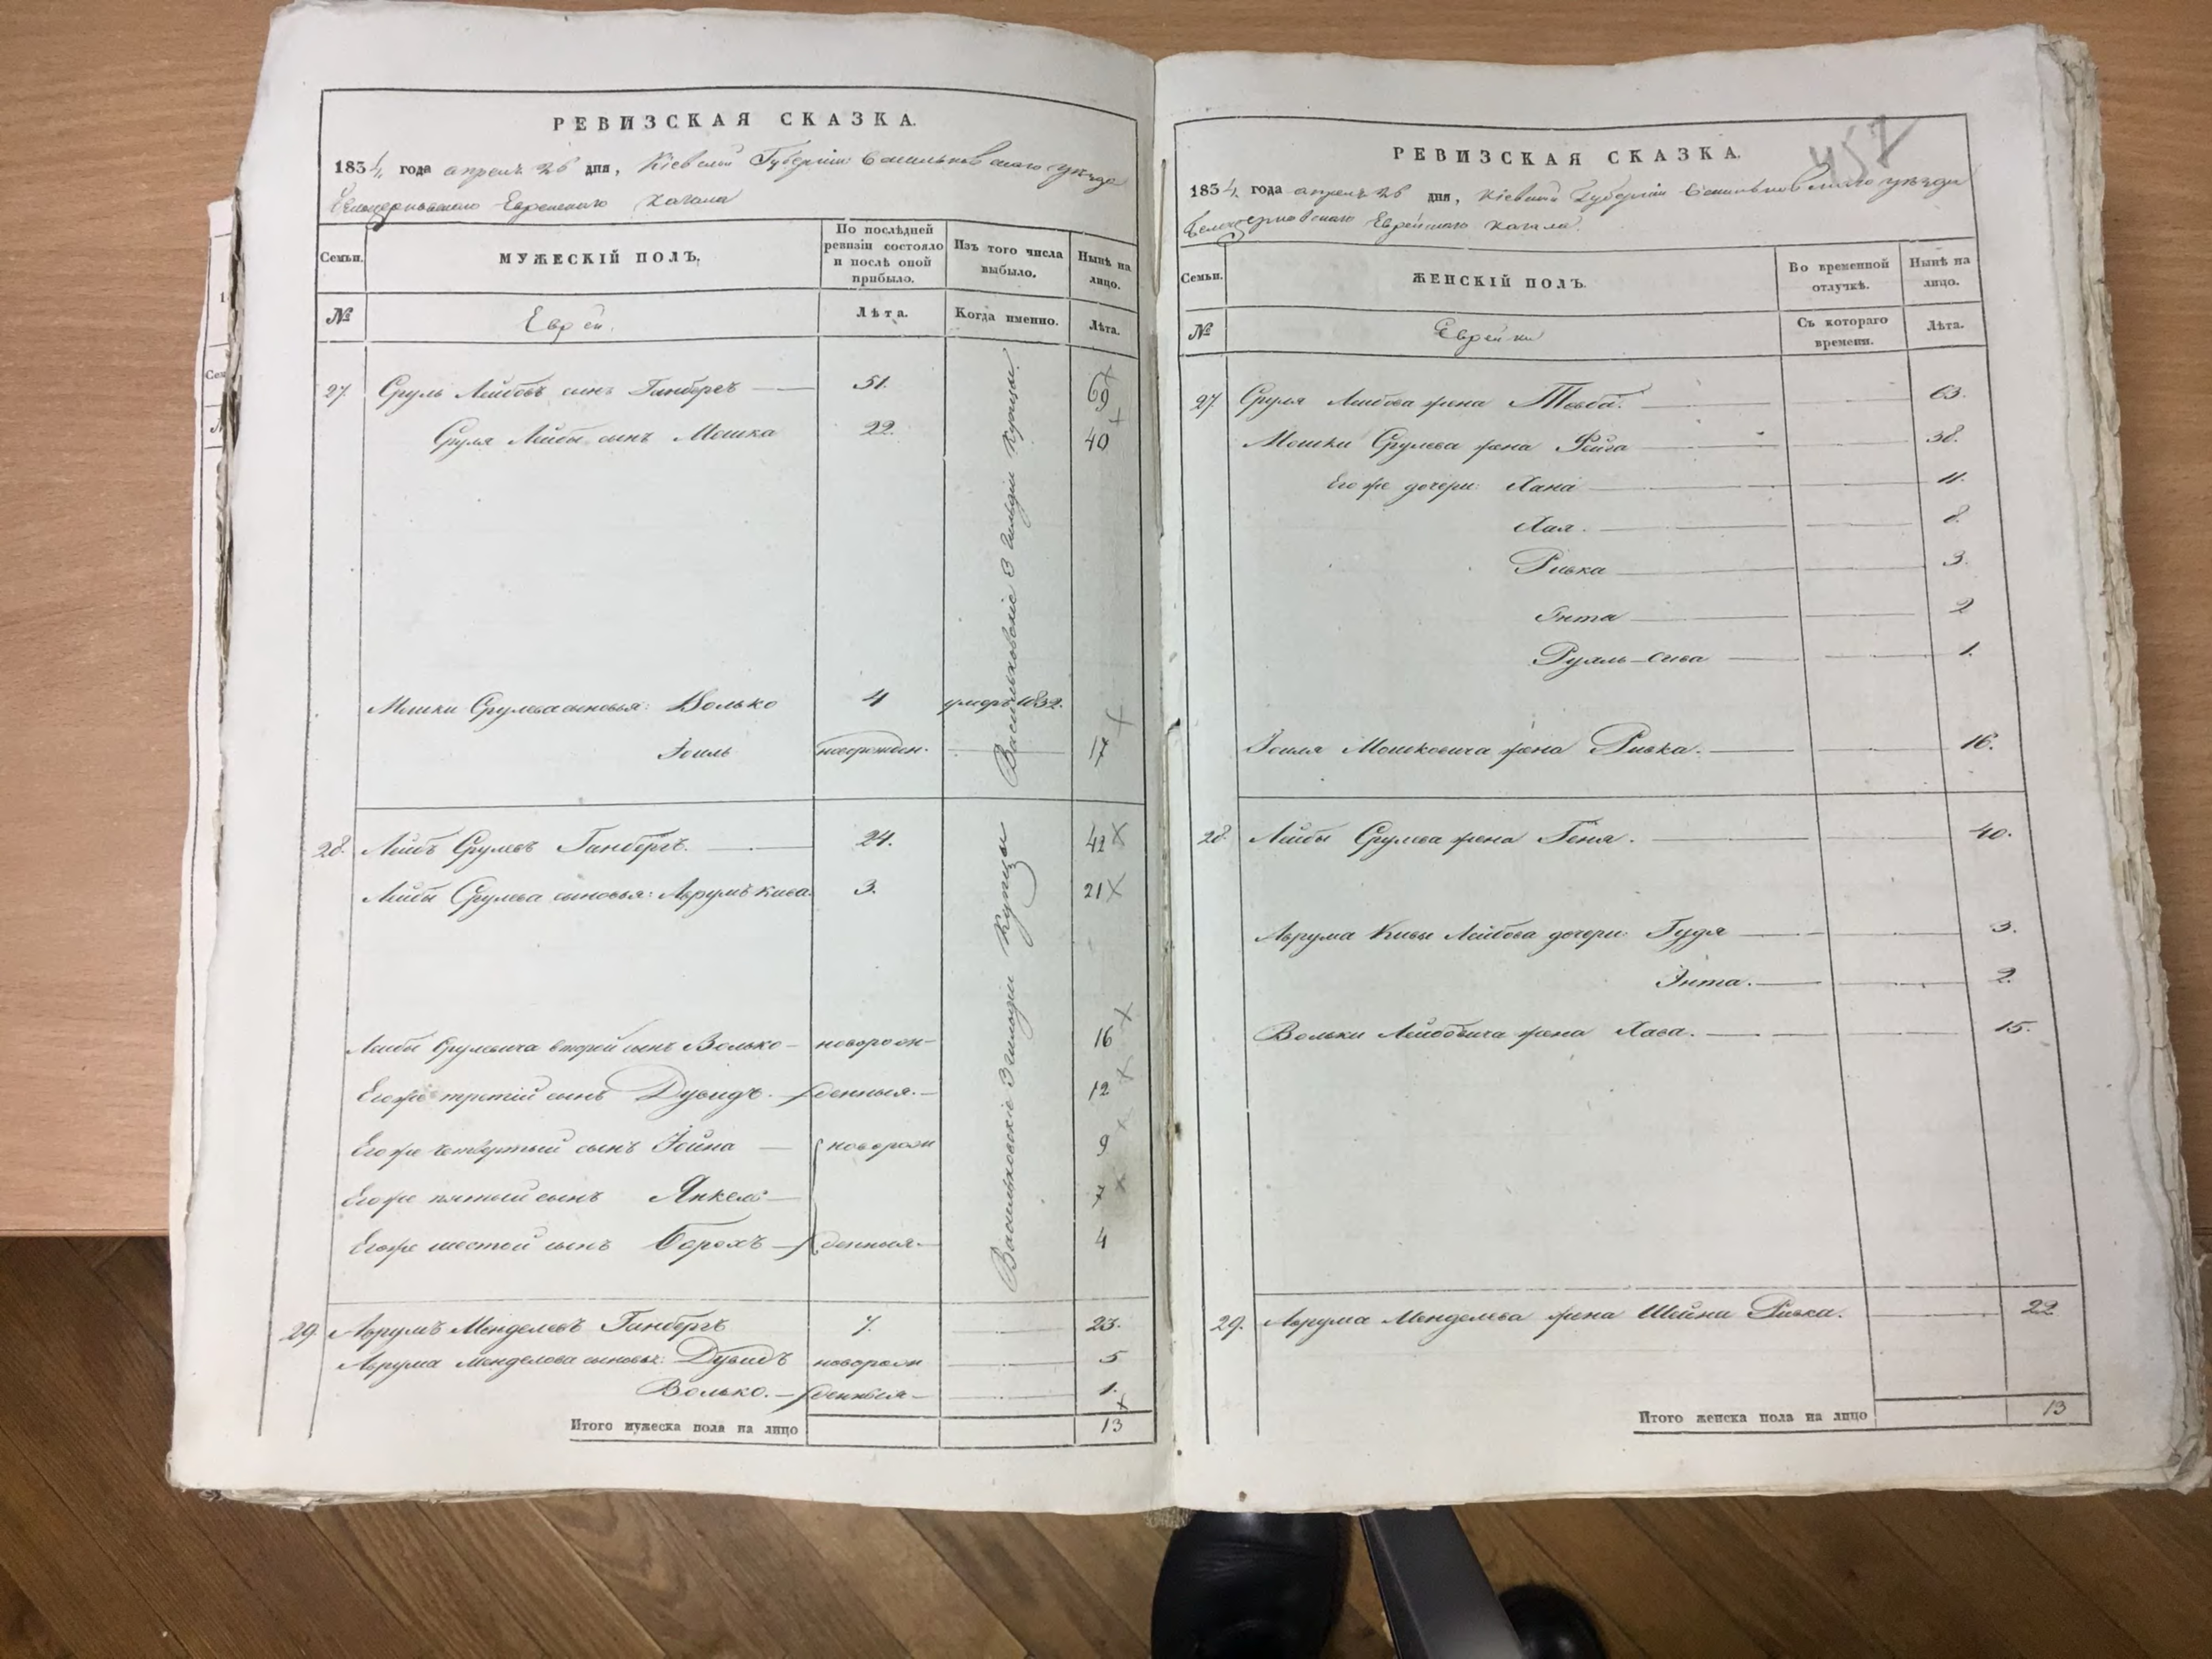 РЕВИЗСКАЯ СКАЗКА.
1834 года апреля 26 дня, Кіевской Губерніи Васильковскаго уѣзда
Белоцерковскаго Еврейскаго Кагала
Семьи.
МУЖЕСКІЙ ПОЛЪ.
По послѣдней ревизіи состояло и послѣ оной прибыло.
Изъ того числа выбыло.
Нынѣ на лицо.
№
Евреи.
Лѣта.
Когда именно.
Лѣта.
27. Сруль Лейбовъ сынъ Ганбергъ 51. 69
Сруля Лейбы сынъ Мошка 22. 40
Мошки Срулева сыновья: Волько 4 умеръ 1832.
Іоиль новорожден. 17
Васильковскіе 3 гильдіи Купцы.
28. Лейбъ Срулевъ Ганбергъ. 24. 42
Лейбы Срулева сыновья: Аврумъ Кива. 3. 21
Лейбы Срулевича второй сынъ Волько новорож- 16
Его же третій сынъ Дувидъ. денныя. 12
Его же четвертый сынъ Іойна новорож 9
Его же пятый сынъ Янкель 7
Его же шестой сынъ Борохъ денныя 4
Васильковскіе 3 гильдіи Купцы
29. Аврумъ Менделевъ Ганбергъ 7. 23.
Аврума Менделева сыновья: Дувидъ новорож 5
Волько. денныя 1.
Итого мужеска пола на лицо 13
457
РЕВИЗСКАЯ СКАЗКА.
1834 года апреля 26 дня, Кіевской Губерніи Васильковскаго уѣзда
Белоцерковскаго Еврейскаго Кагала.
Семьи.
ЖЕНСКІЙ ПОЛЪ.
Во временной отлучкѣ.
Нынѣ на лицо.
№
Еврейки
Съ котораго времени.
Лѣта.
27. Сруля Лейбова жена Товба. 63.
Мошки Срулева жена Фейга 38.
Его же дочери: Хана 11.
Хая. 8.
Ривка 3.
Энта 2
Рухль-Сива 1.
Іоиля Мошковича жена Ривка. 16.
28. Лейбы Срулева жена Геня. 40.
Аврума Кивы Лейбова дочери: Гудя 3.
Энта. 2.
Вольки Лейбовича жена Хава. 15.
29. Аврума Менделева жена Шейна Ривка. 22
Итого женска пола на лицо 13